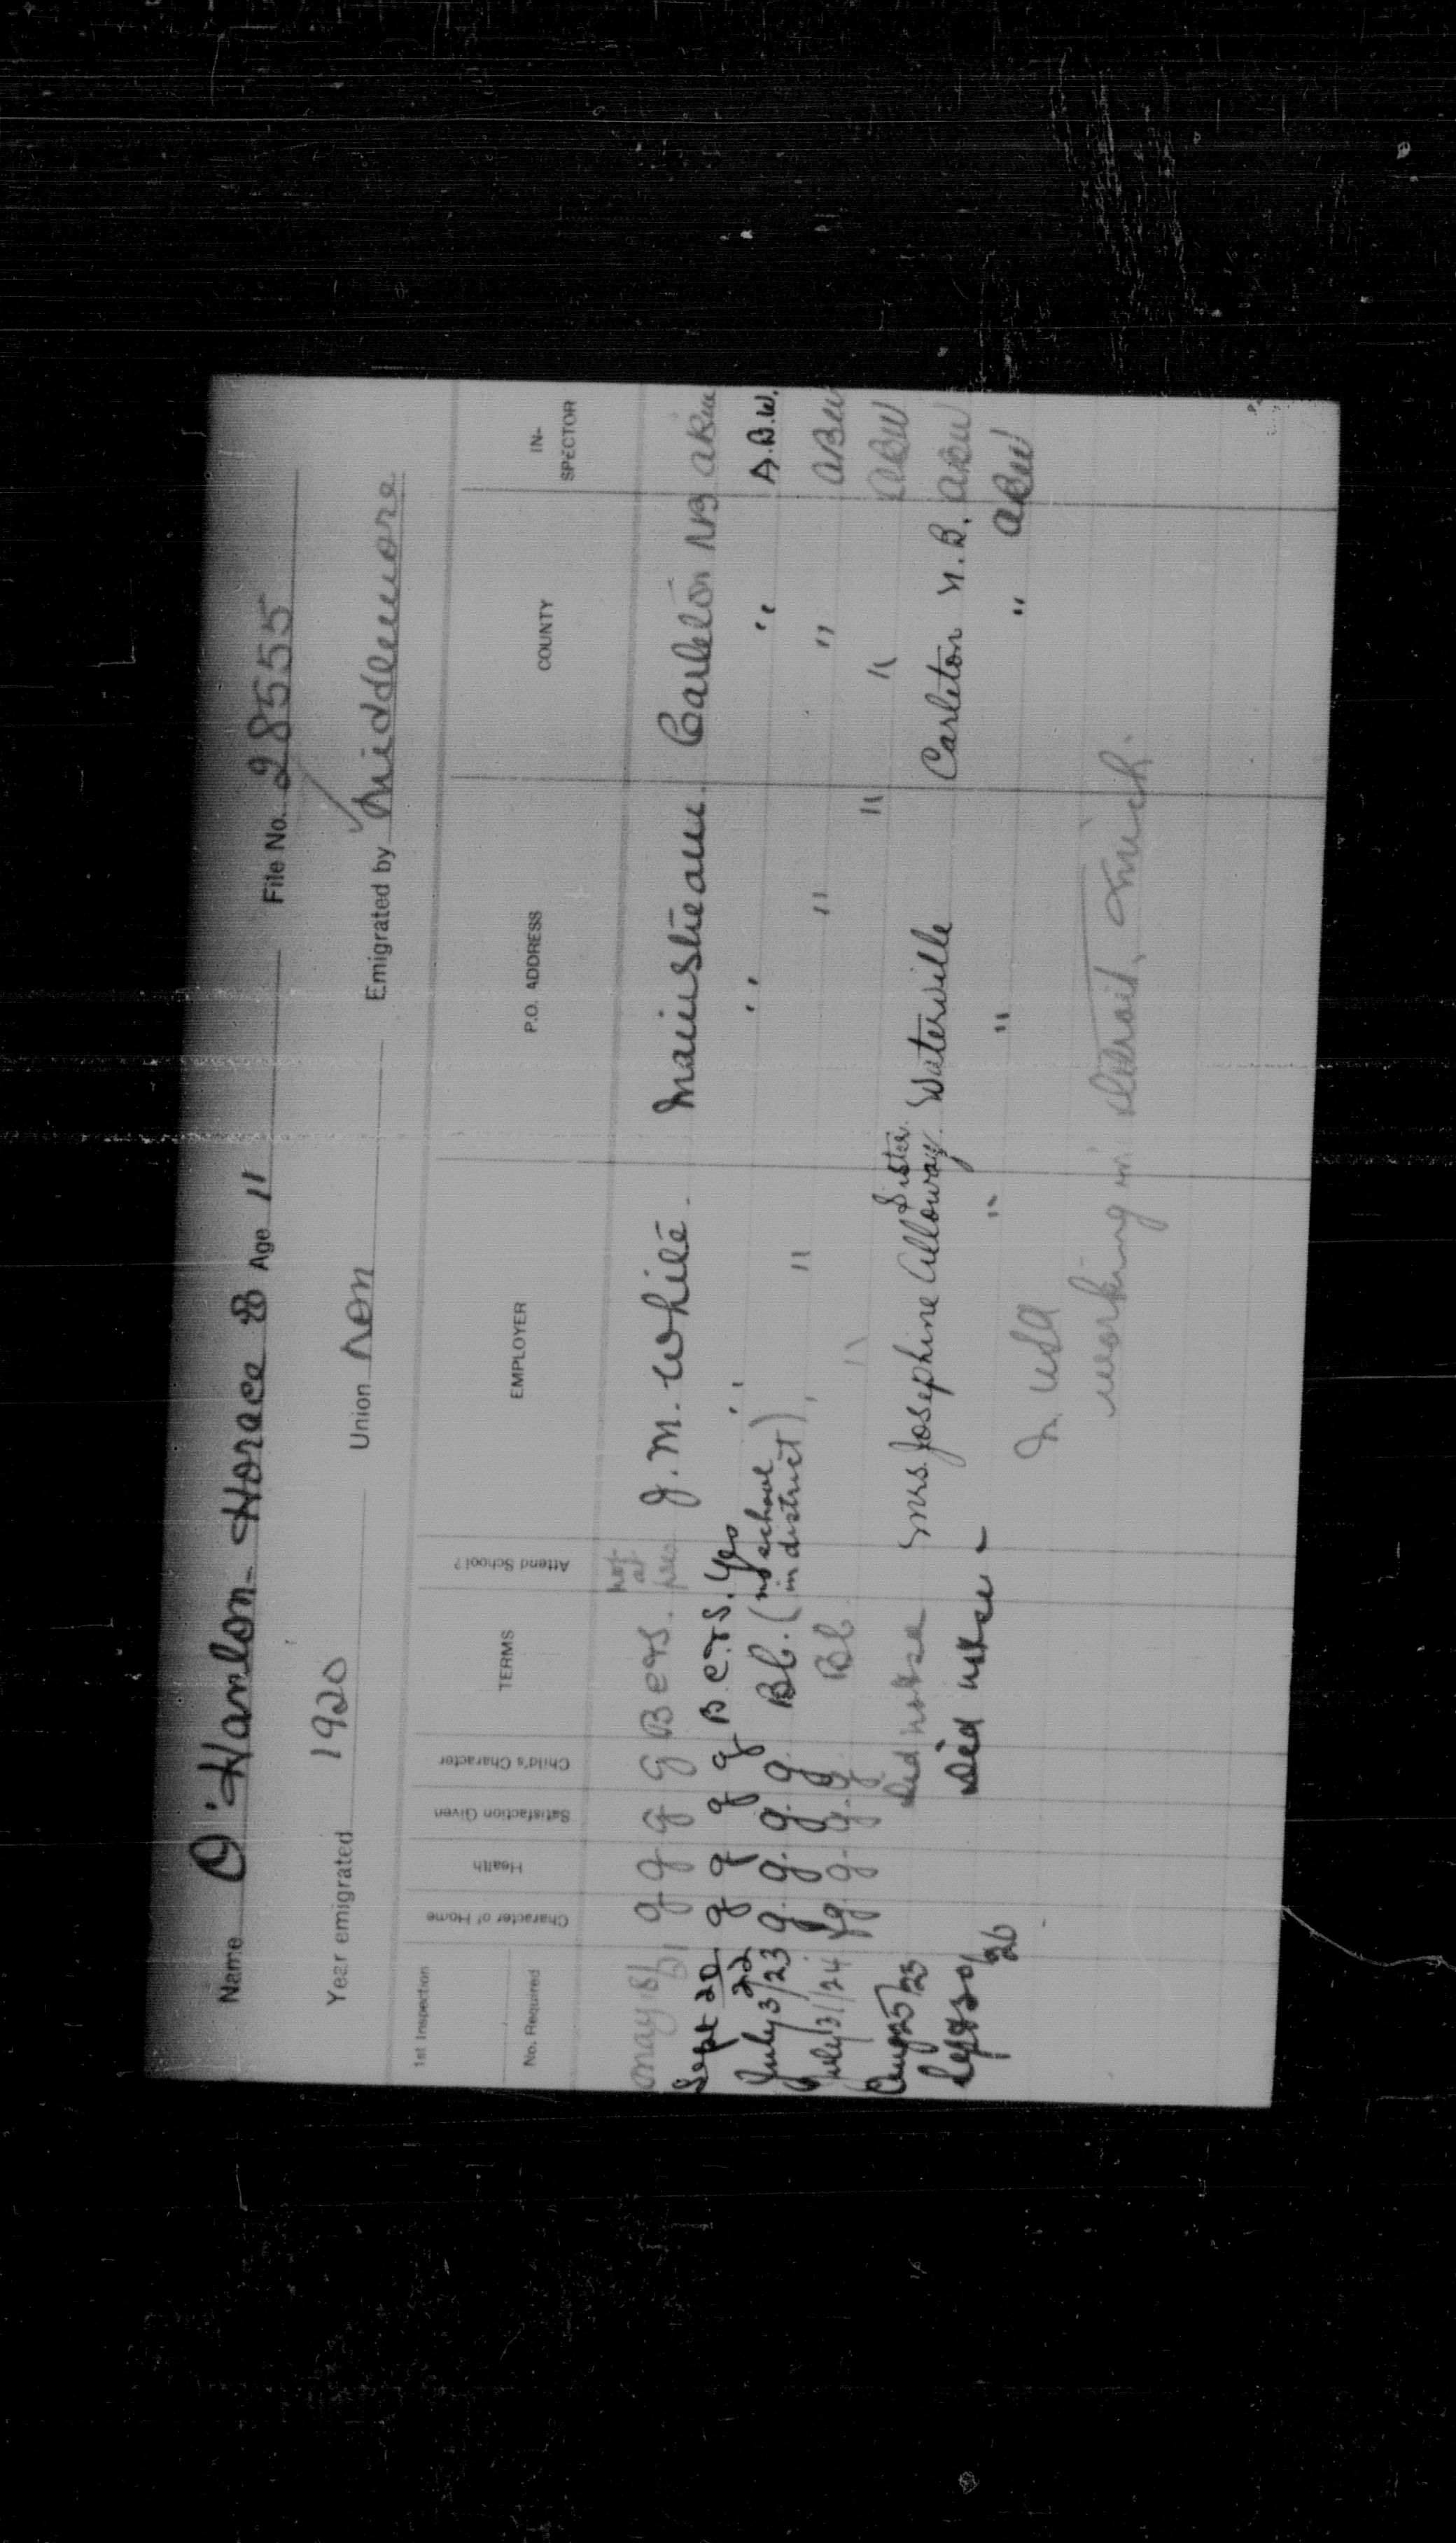 Name O'Hanlon - Horace Age 11 File No. 28555
Year emigrated 1920 Union non Emigrated by Middlemore
1st Inspection
No. Required
Character of Home Health Satisfaction Given Child's Character TERMS Attend School? EMPLOYER P.O. ADDRESS COUNTY IN-SPECTOR
May 31/21 g g g g B C & S. not at pres J. M. White. Mainstream. Carleton NB ABW
Sept 20 22 g g g g B. C. & S. Yes " " " A.B.W.
July 3/23 g. g. g. g. Bb. (no school in district), " " " ABW
July 31/24 fg. g. g. g. Bb " " " ABW
Aug 25/25 Did not see Mrs. Josephine Alloway. Sister. Waterville Carleton N.B. ABW
Sept 30/26 Did not see - " " " ABW
In USA
working in Detroit, Mich.